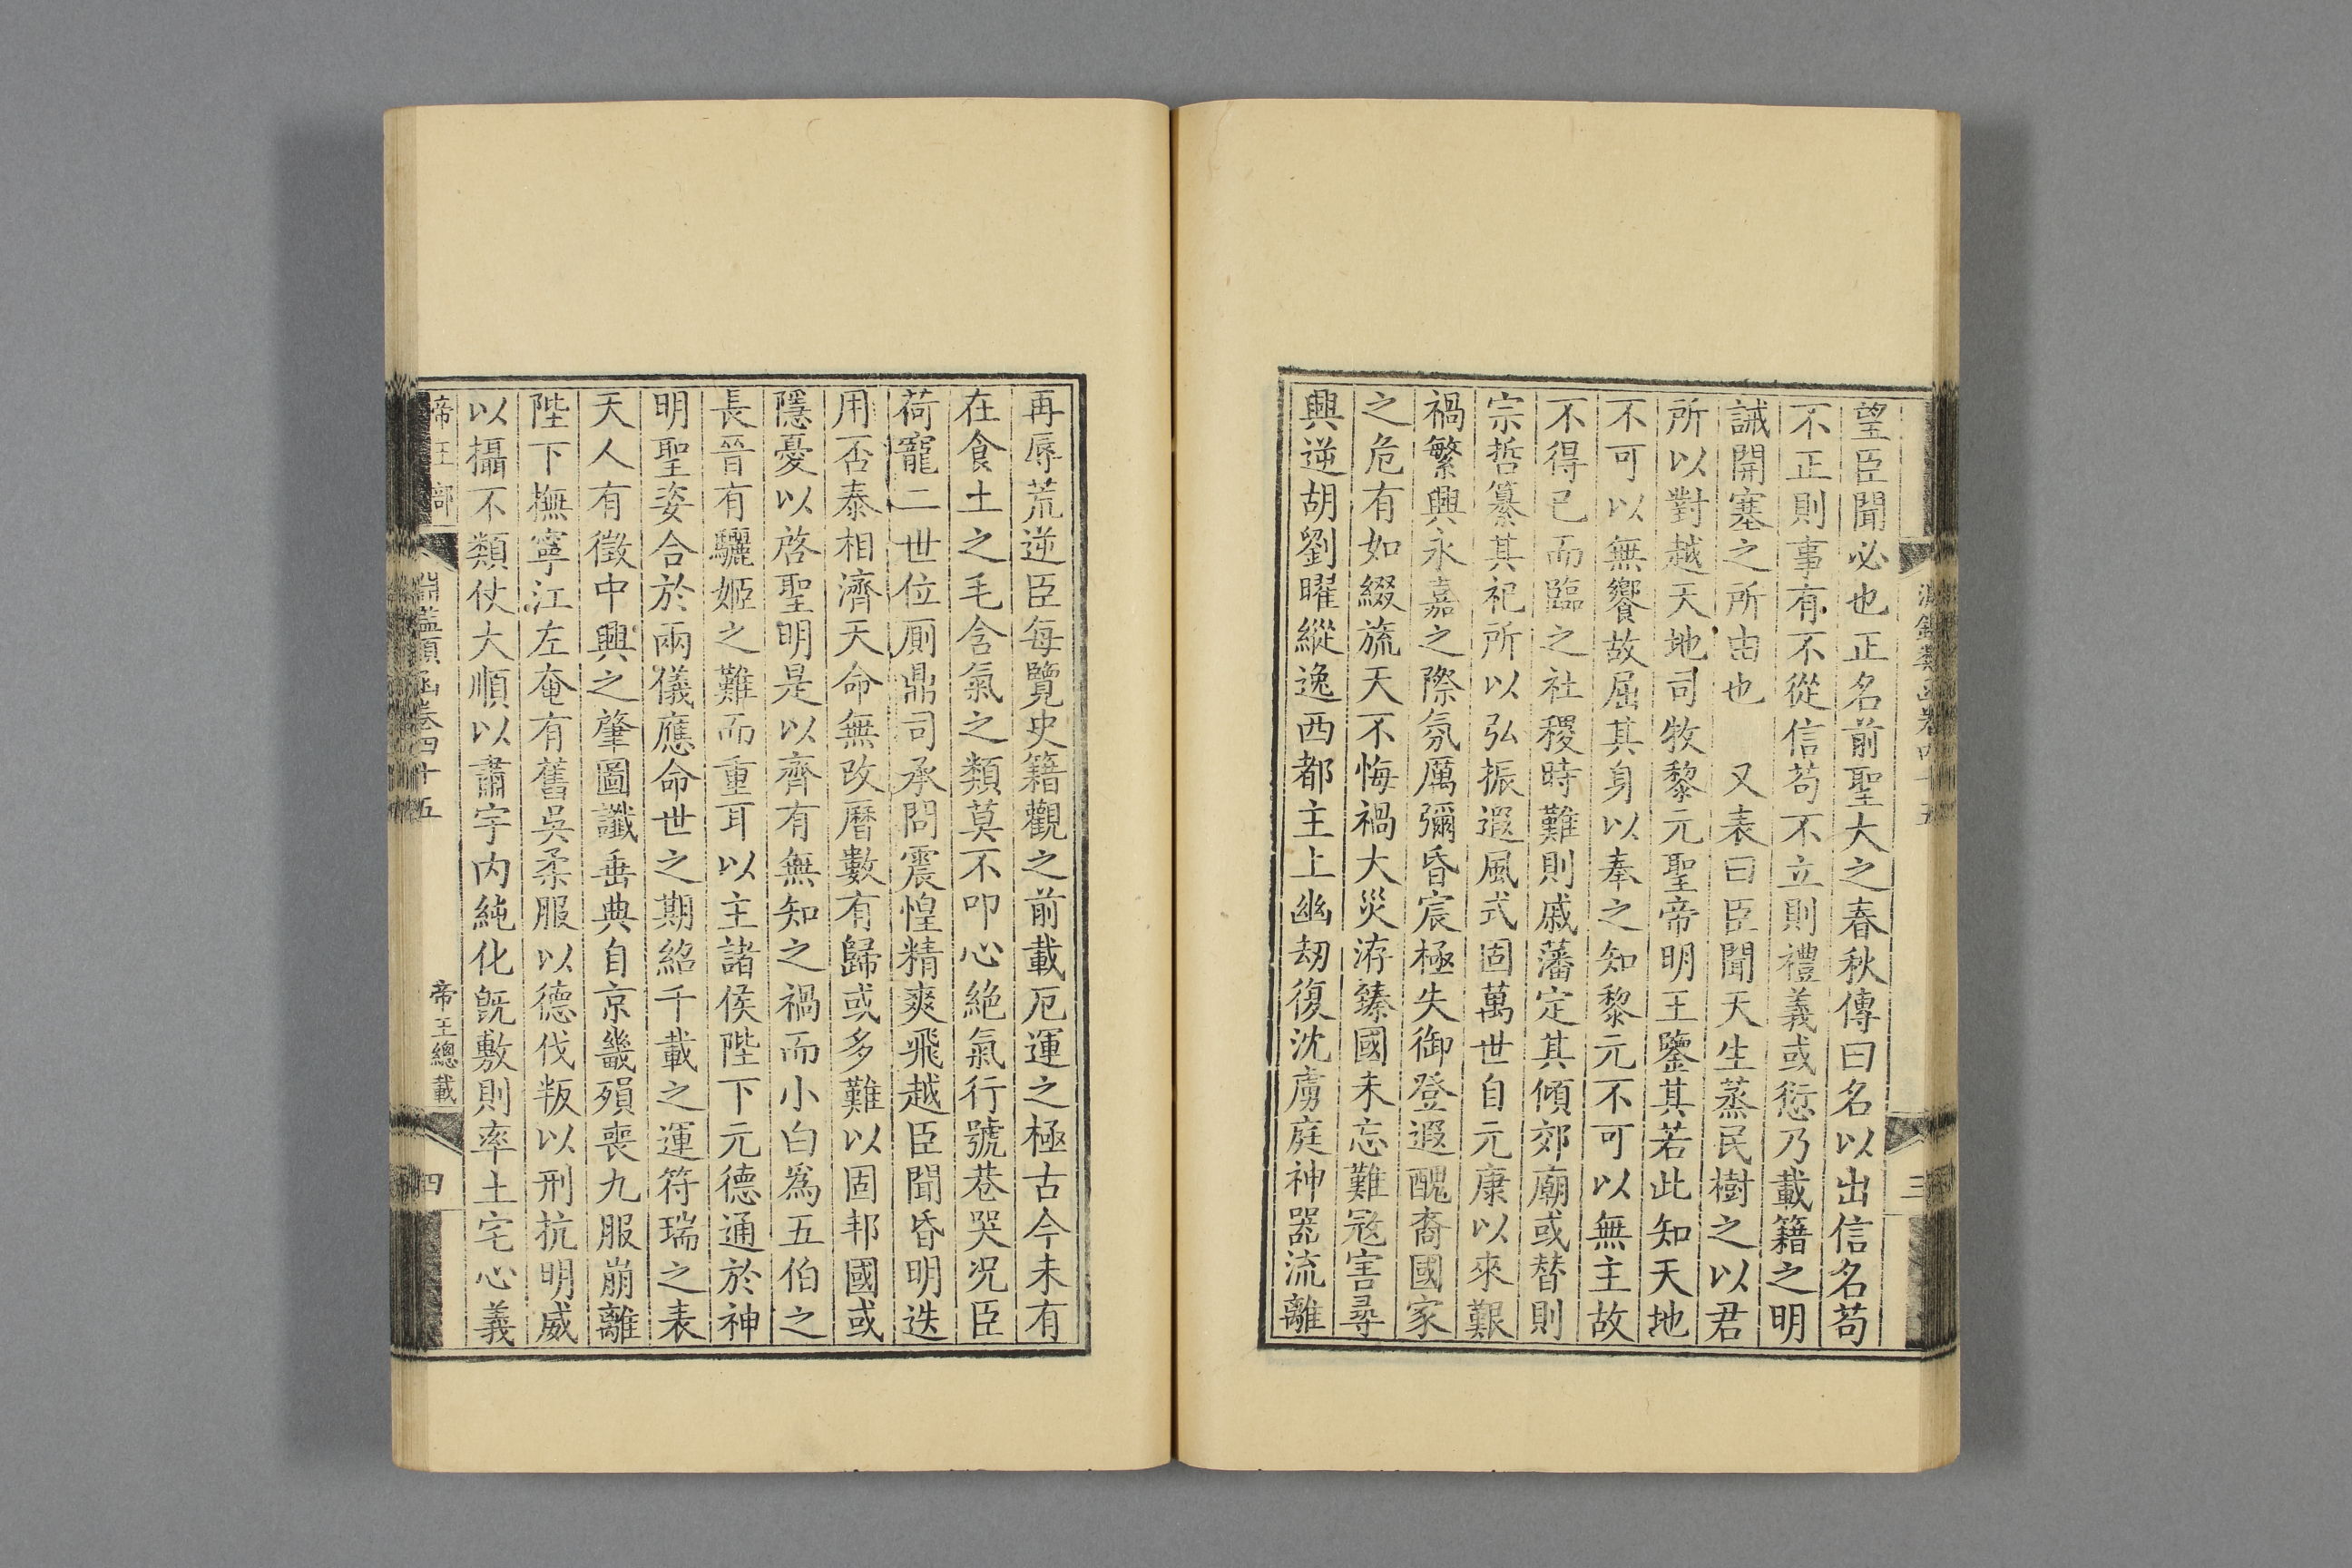 淵鑑類函卷四十五
三
望臣聞必也正名前聖大之春秋傳曰名以出信名苟
不正則事有不從信苟不立則禮義或愆乃載籍之明
誡開塞之所由也　又表曰臣聞天生蒸民樹之以君
所以對越天地司牧黎元聖帝明王鑒其若此知天地
不可以無饗故屈其身以奉之知黎元不可以無主故
不得已而臨之社稷時難則戚藩定其傾郊廟或替則
宗哲纂其祀所以弘振遐風式固萬世自元康以來艱
禍繁興永嘉之際氛厲彌昏宸極失御登遐醜裔國家
之危有如綴旒天不悔禍大災洊臻國未忘難寇害尋
興逆胡劉曜縱逸西都主上幽劫復沈虜庭神器流離
再辱荒逆臣每覽史籍觀之前載厄運之極古今未有
在食土之毛含氣之類莫不叩心絕氣行號巷哭况臣
荷寵二世位厠鼎司承問震惶精爽飛越臣聞昏明迭
用否泰相濟天命無改曆數有歸或多難以固邦國或
隱憂以啓聖明是以齊有無知之禍而小白爲五伯之
長晉有驪姬之難而重耳以主諸侯陛下元德通於神
明聖姿合於兩儀應命世之期紹千載之運符瑞之表
天人有徵中興之肇圖讖垂典自京畿殞喪九服崩離
陛下撫寧江左奄有舊吳柔服以德伐叛以刑抗明威
以攝不類仗大順以肅宇内純化旣敷則率土宅心義
帝王部
淵鑑類函卷四十五
帝王總載
四